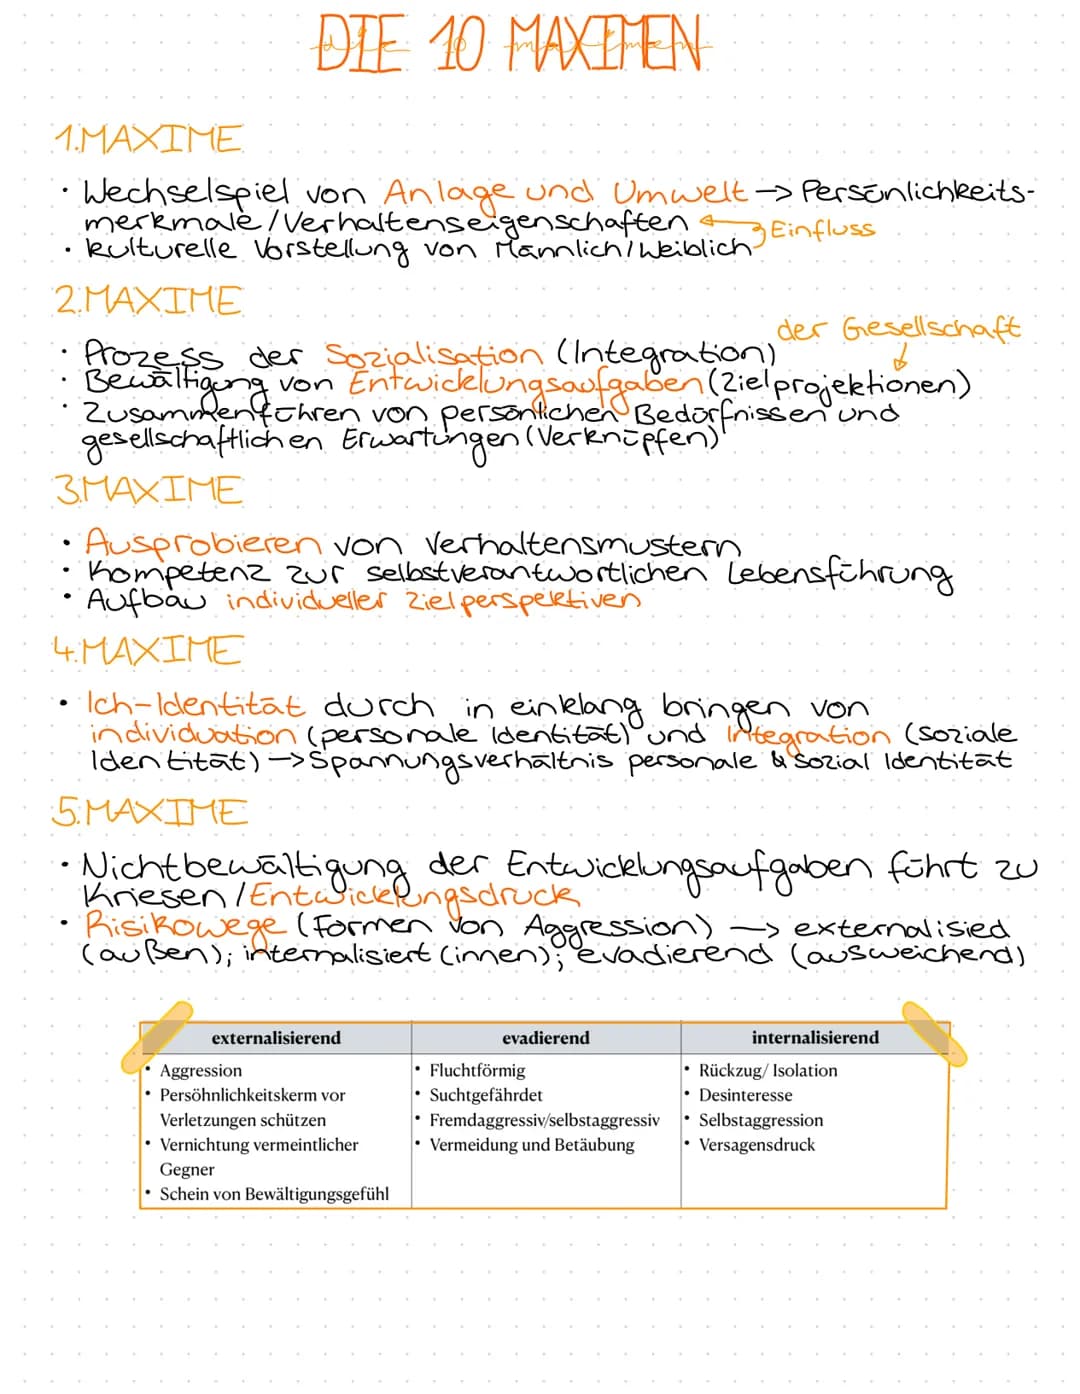 DIE 10 MAXIMEN
1.MAXIME
• Wechselspiel von Anlage und Umwelt → Persönlichkeits-
merkmale/Verhaltenseigenschaften
Einfluss
• kulturelle Vorstellung von Männlich/Weiblich
2.MAXIME
der Gesellschaft
• Prozess der Sozialisation (Integration)
• Bewältigung von Entwicklungsaufgaben (Zielprojektionen)
• Zusammenführen von persönlichen Bedürfnissen und
gesellschaftlichen Erwartungen (Verknüpfen)
3.MAXIME
• Ausprobieren von Verhaltensmustern
• Kompetenz zur selbstverantwortlichen Lebensführung
• Aufbau individueller Zielperspektiven
4.MAXIME
• Ich-Identität durch in einklang bringen von
individuation (personale Identität) und Integration (soziale
Identität) → Spannungsverhältnis personale & sozial Identität
5.MAXIME
• Nichtbewältigung der Entwicklungsaufgaben führt zu
Kriesen/Entwicklungsdruck
• Risikowege (Formen von Aggression) → externalisied
(außen); internalisiert (innen); evadierend (ausweichend)
externalisierend evadierend internalisierend
• Aggression
• Persöhnlichkeitskerm vor
Verletzungen schützen
• Vernichtung vermeintlicher
Gegner
• Schein von Bewältigungsgefühl
• Fluchtförmig
• Suchtgefährdet
• Fremdaggressiv/selbstaggressiv
• Vermeidung und Betäubung
• Rückzug/ Isolation
• Desinteresse
• Selbstaggression
• Versagensdruck